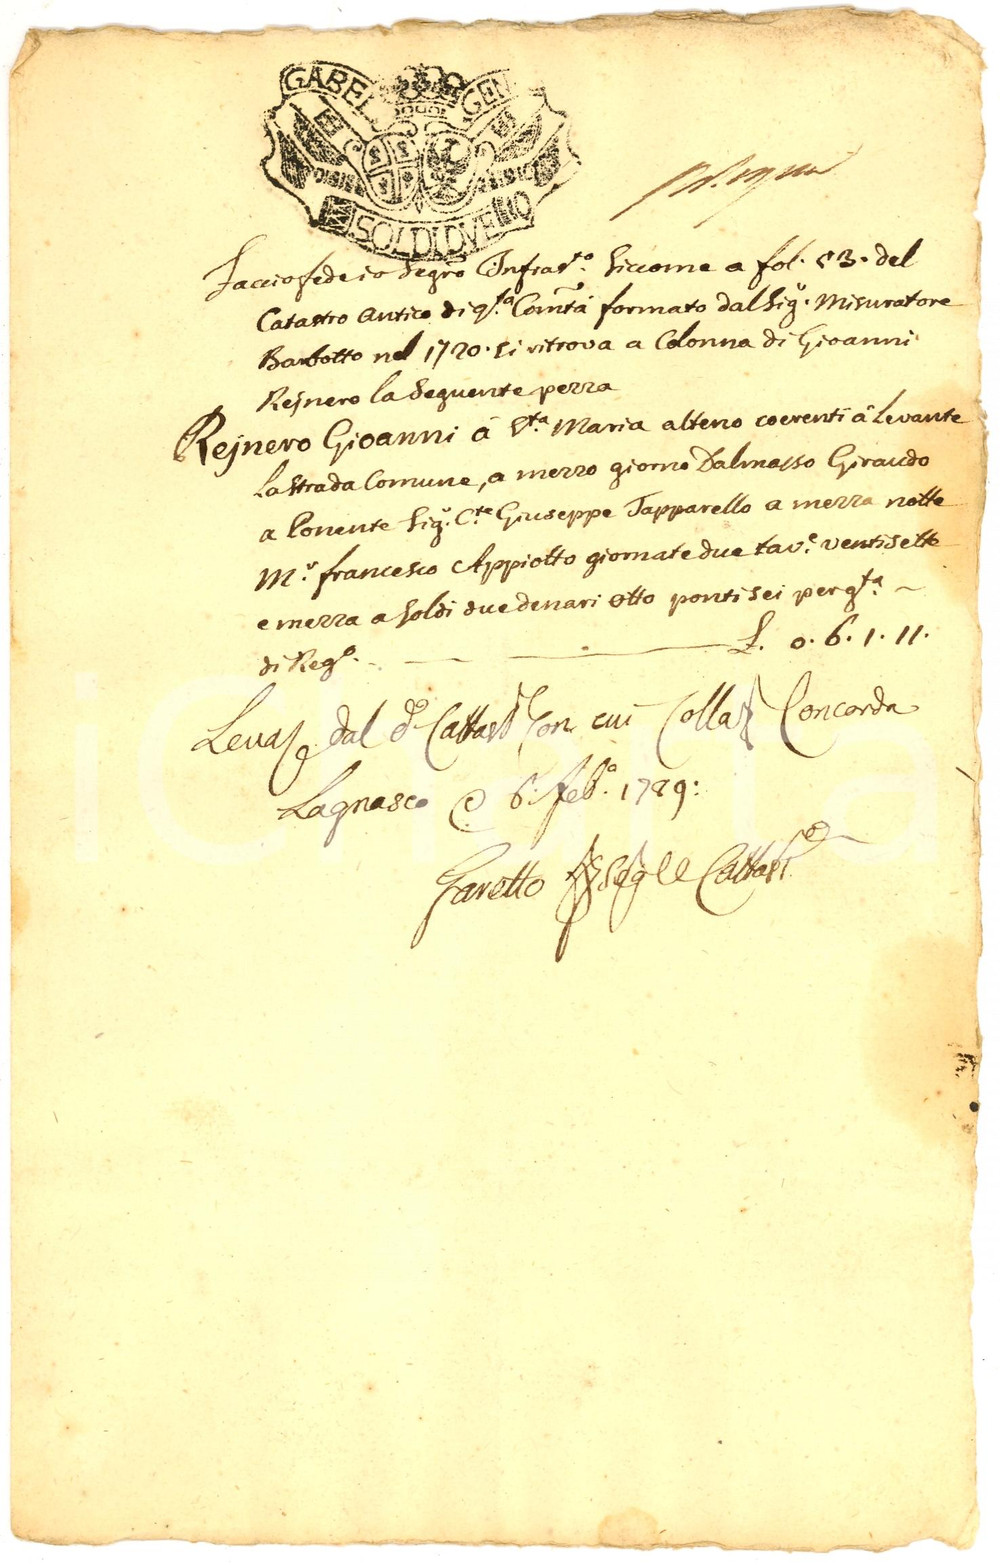 GABEL GEN
SOLDI DVE
Faccio fede io Segro Infrasto. Siccome a fol. 53. del
Catastro antico di qta Comtà formato dal Sigr. Misuratore
Barbotto nel 1720. si ritrova a Colonna di Gioanni
Rejnero la Seguente pezza
Rejnero Gioanni á Sta. Maria alteno coerenti á Levante
la Strada Comune, a mezzo giorno Dalmasso Giraudo
a Ponente Sigr. Cte Giuseppe Tapparello a mezza notte
Mr. francesco Appiotto giornate due tave. ventisette
e mezza a Soldi due denari otto ponti sei per gta.
di Rego. L. 0. 6. 1. 11.
Levato dal do Cattasto Con cui Collat Concorda
Lagnasco 6. febo. 1729:
Garetto Segle Cattasto